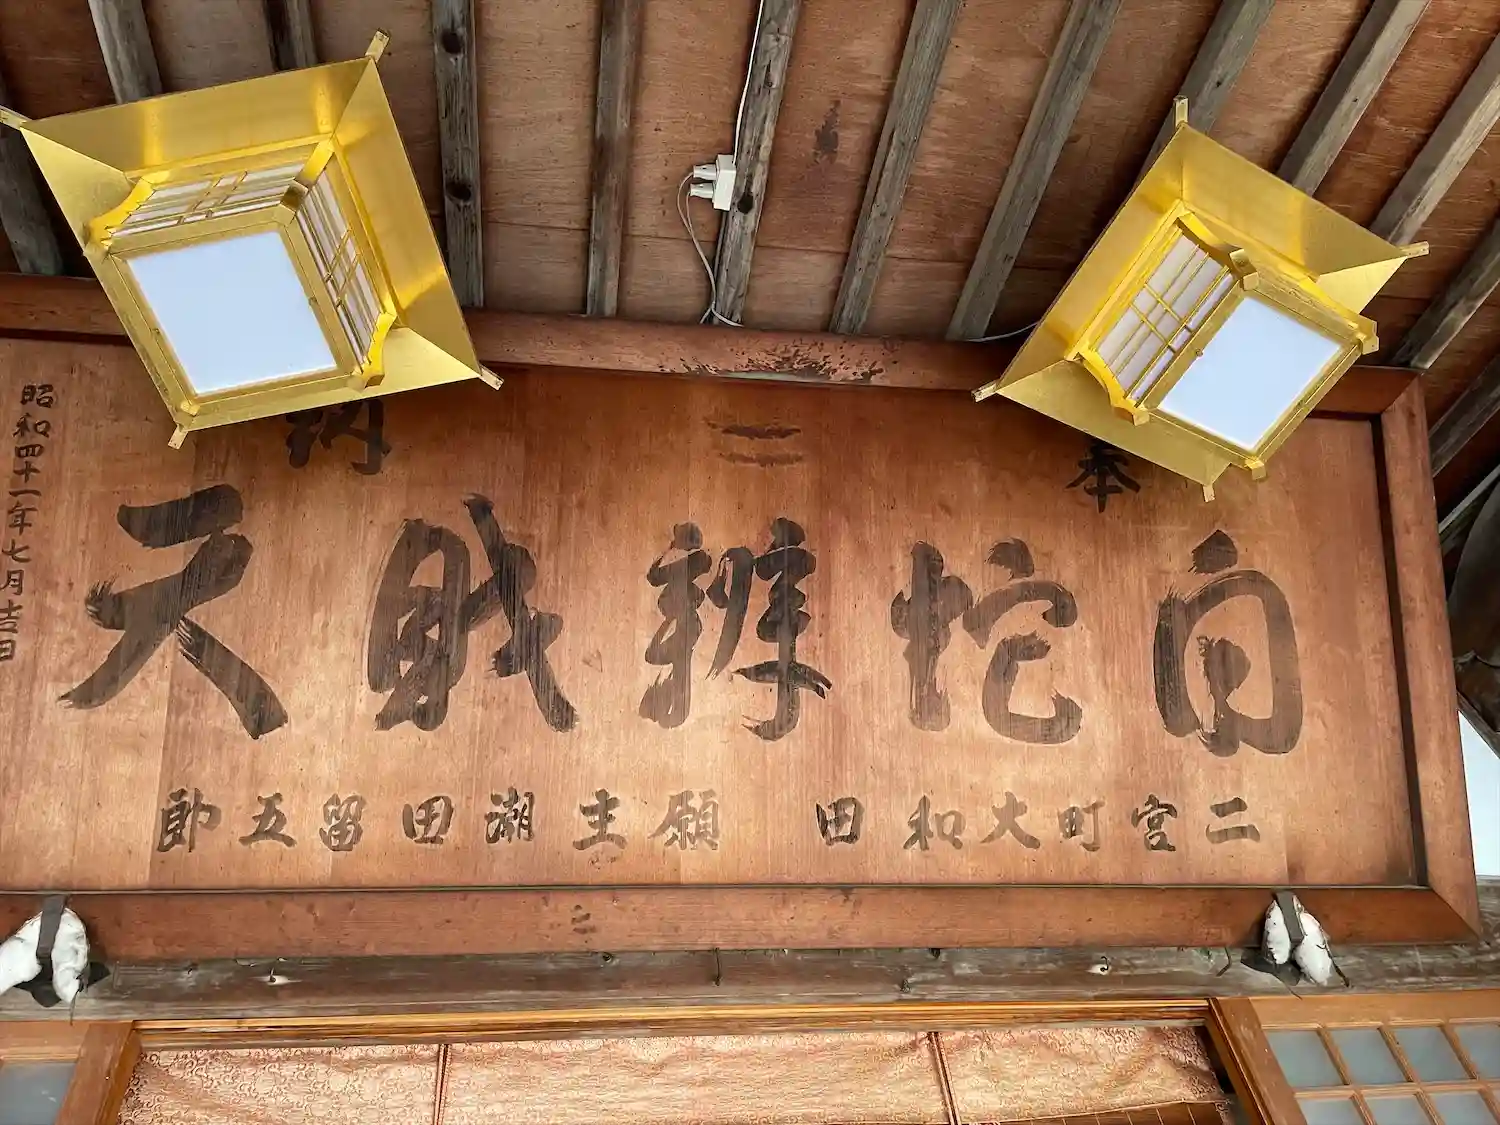 奉納
白蛇辨財天
二宮町大和田 願主 潮田留五郎
昭和四十一年七月吉日